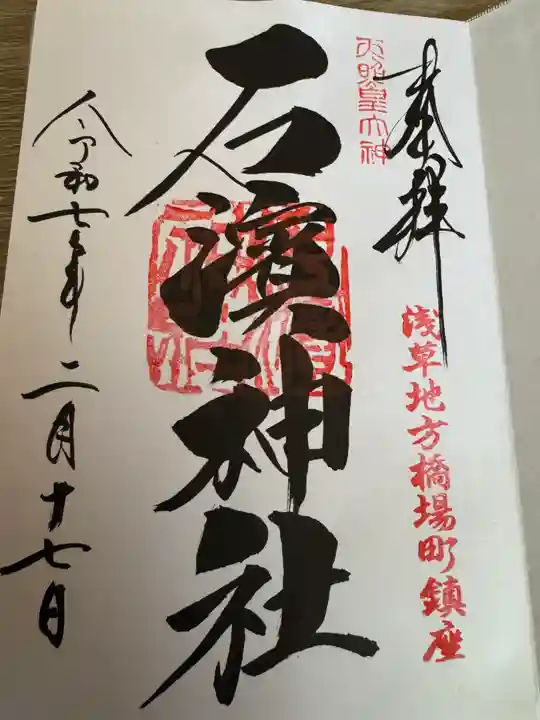 奉拝
天照皇大神
浅草地方橋場町鎮座
石濱神社
令和七年二月十七日